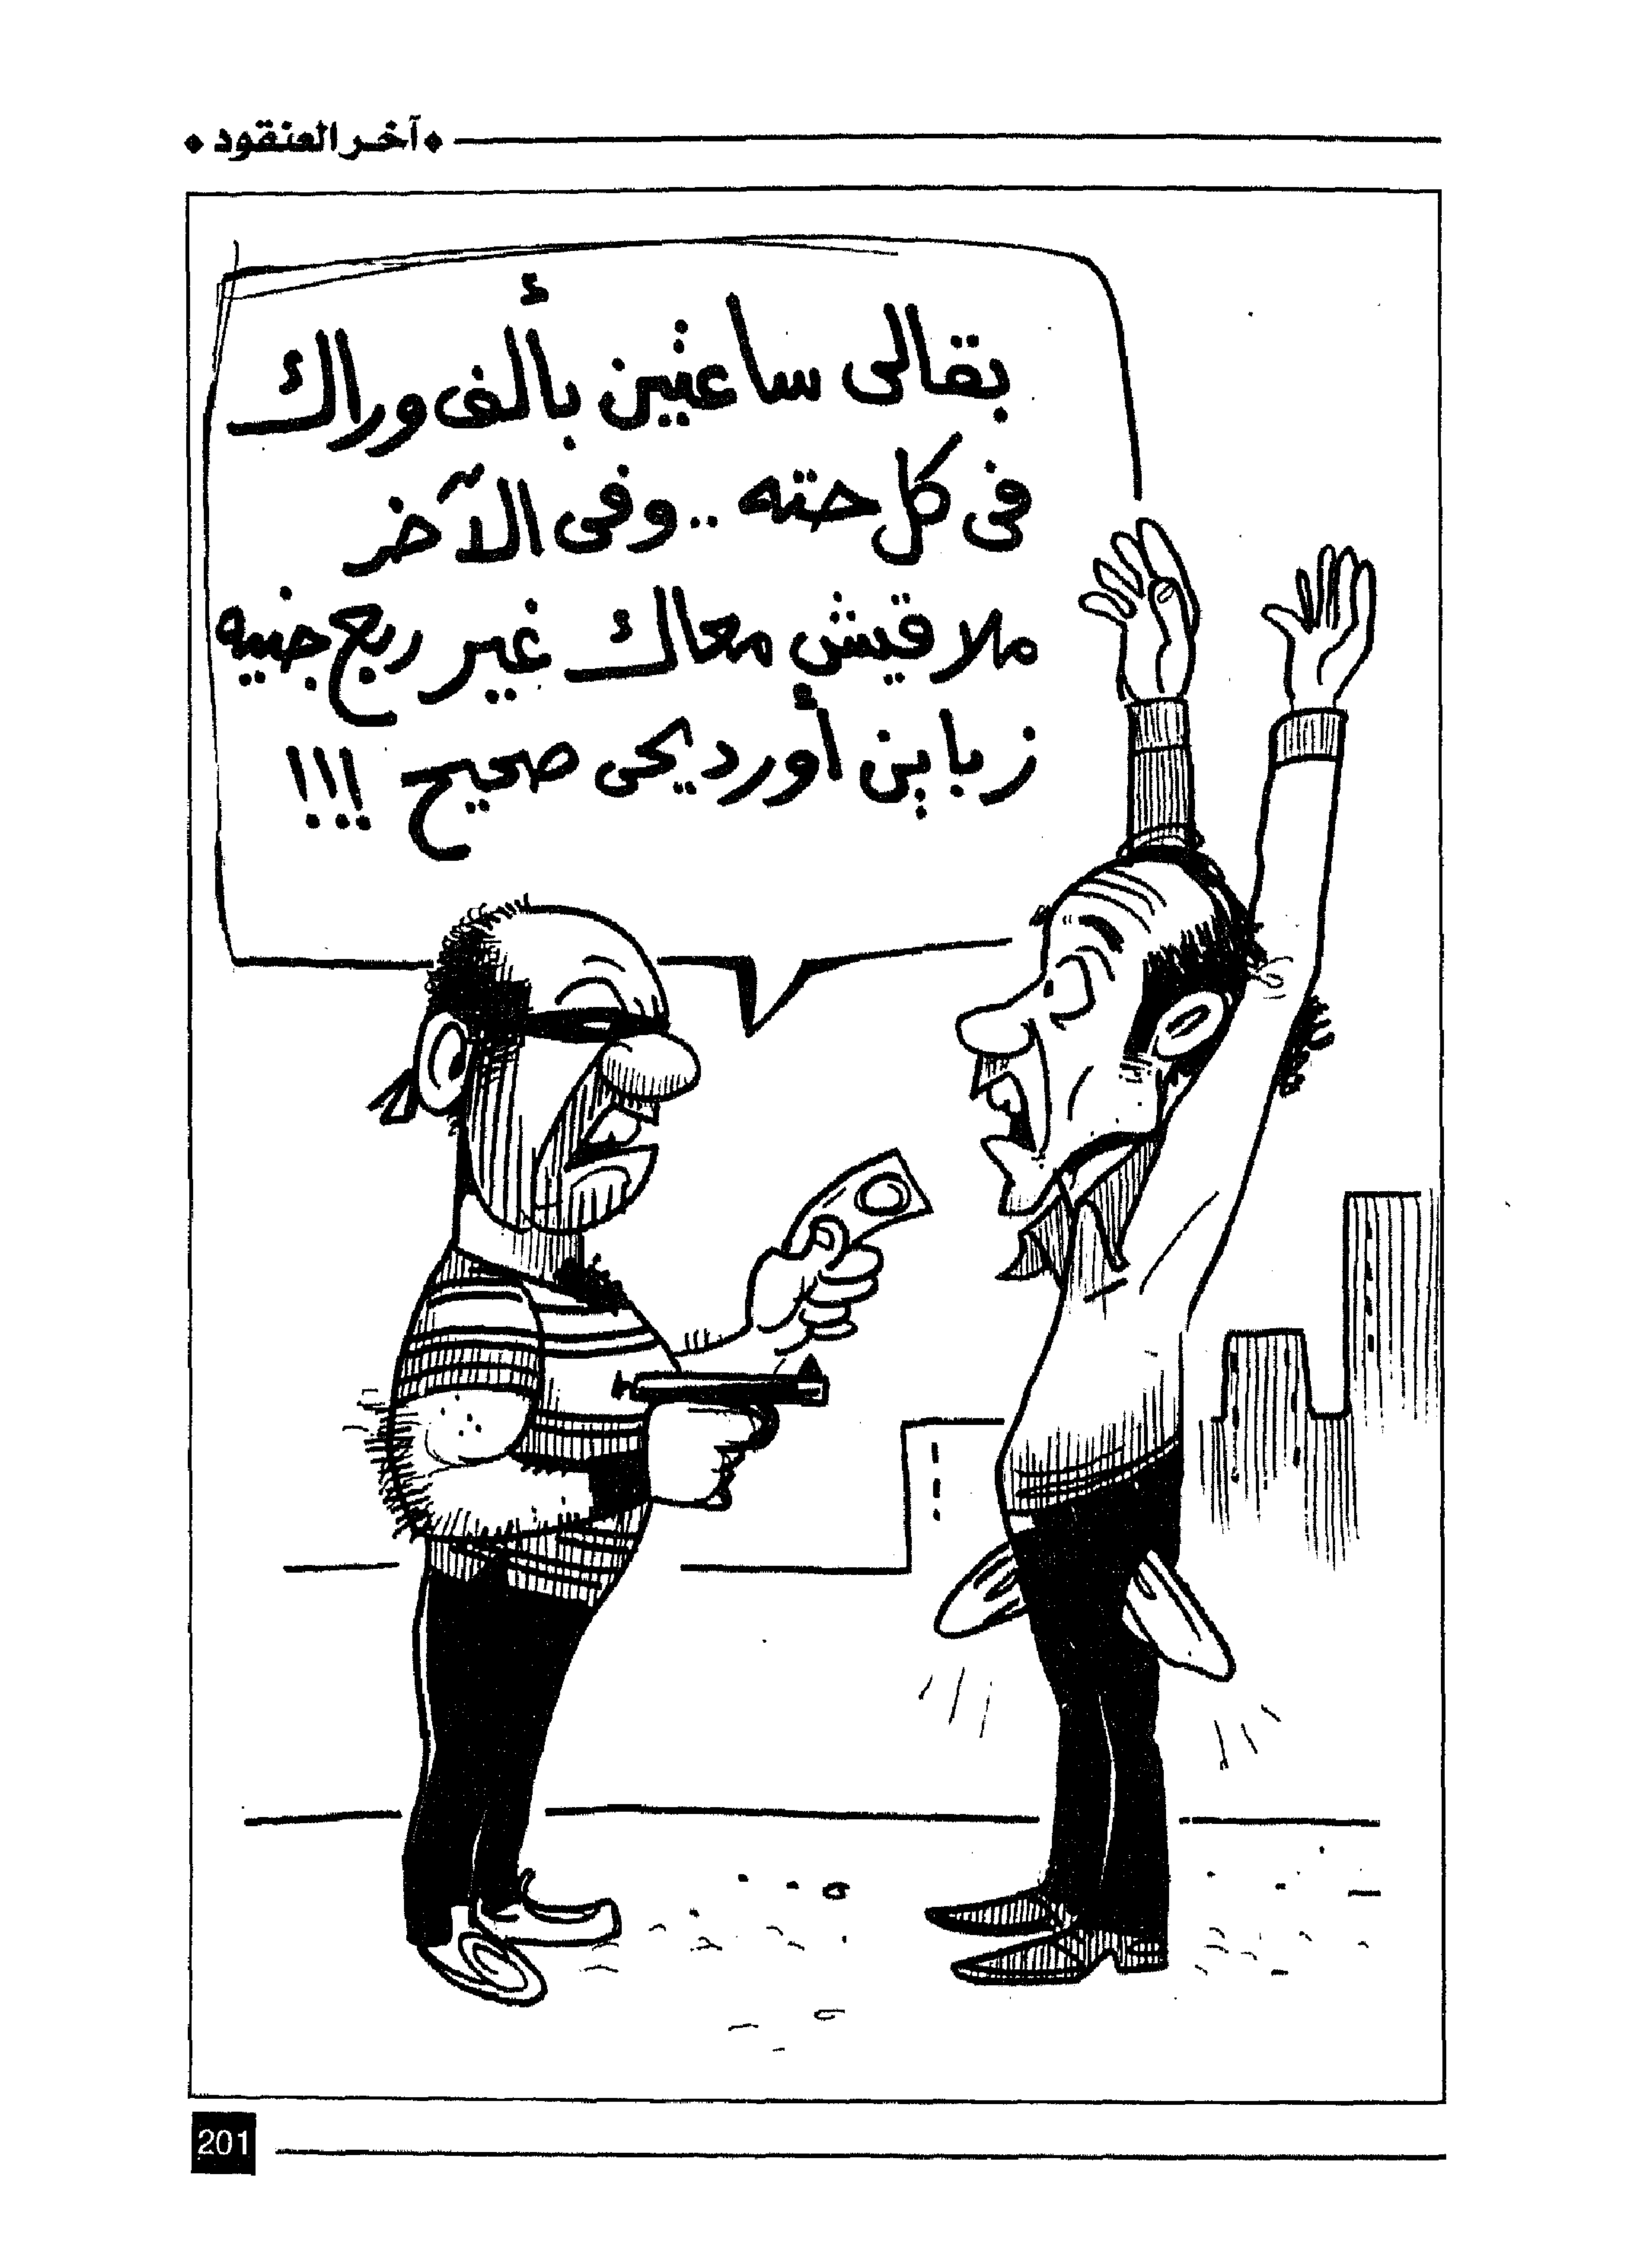 آخر العنقود
بقالى ساعتين بألف وراك
فى كل حته .. وفى الآخر
ملاقيش معاك غير ربع جنيه
زباين أورديحى صحيح !!!
201